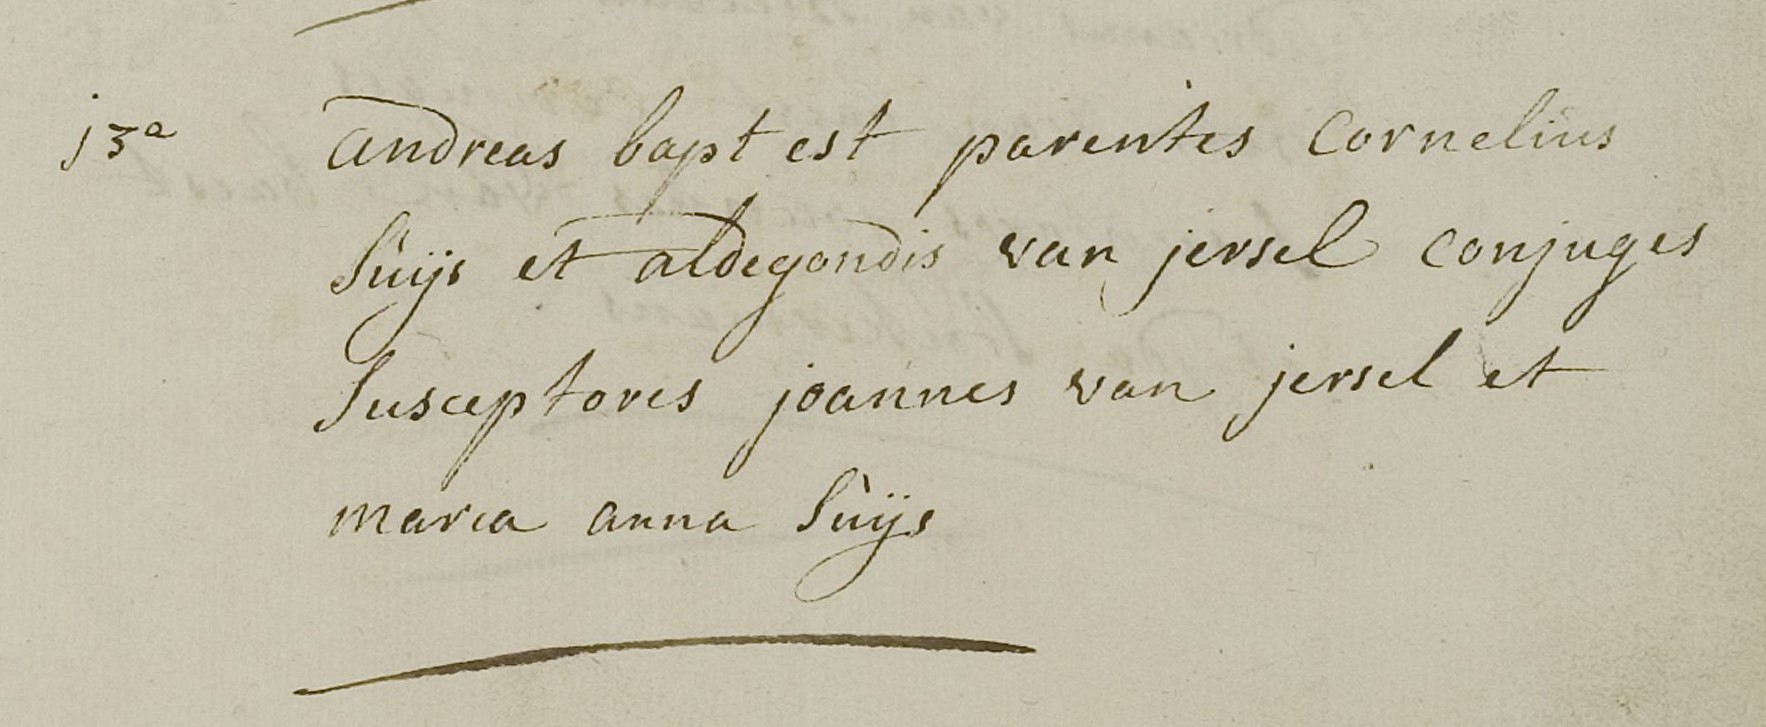 j3a andreas bapt est parentes Cornelius
Suijs et aldegondis van jersel conjuges
Susceptores joannes van jersel et
maria anna Suijs